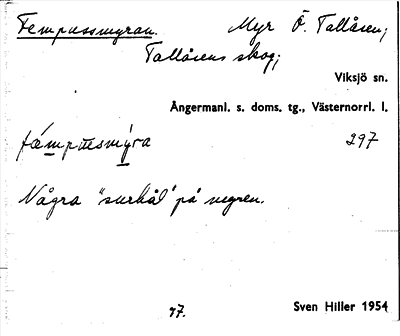 Fempussmyran. Myr Ö. Tallåsen;
Tallåsens skog;
Viksjö sn.
Ångermanl. s. doms. tg., Västernorrl. l.
fæmpusmýra 297
Några "surhål" på myren.
97.
Sven Hiller 1954